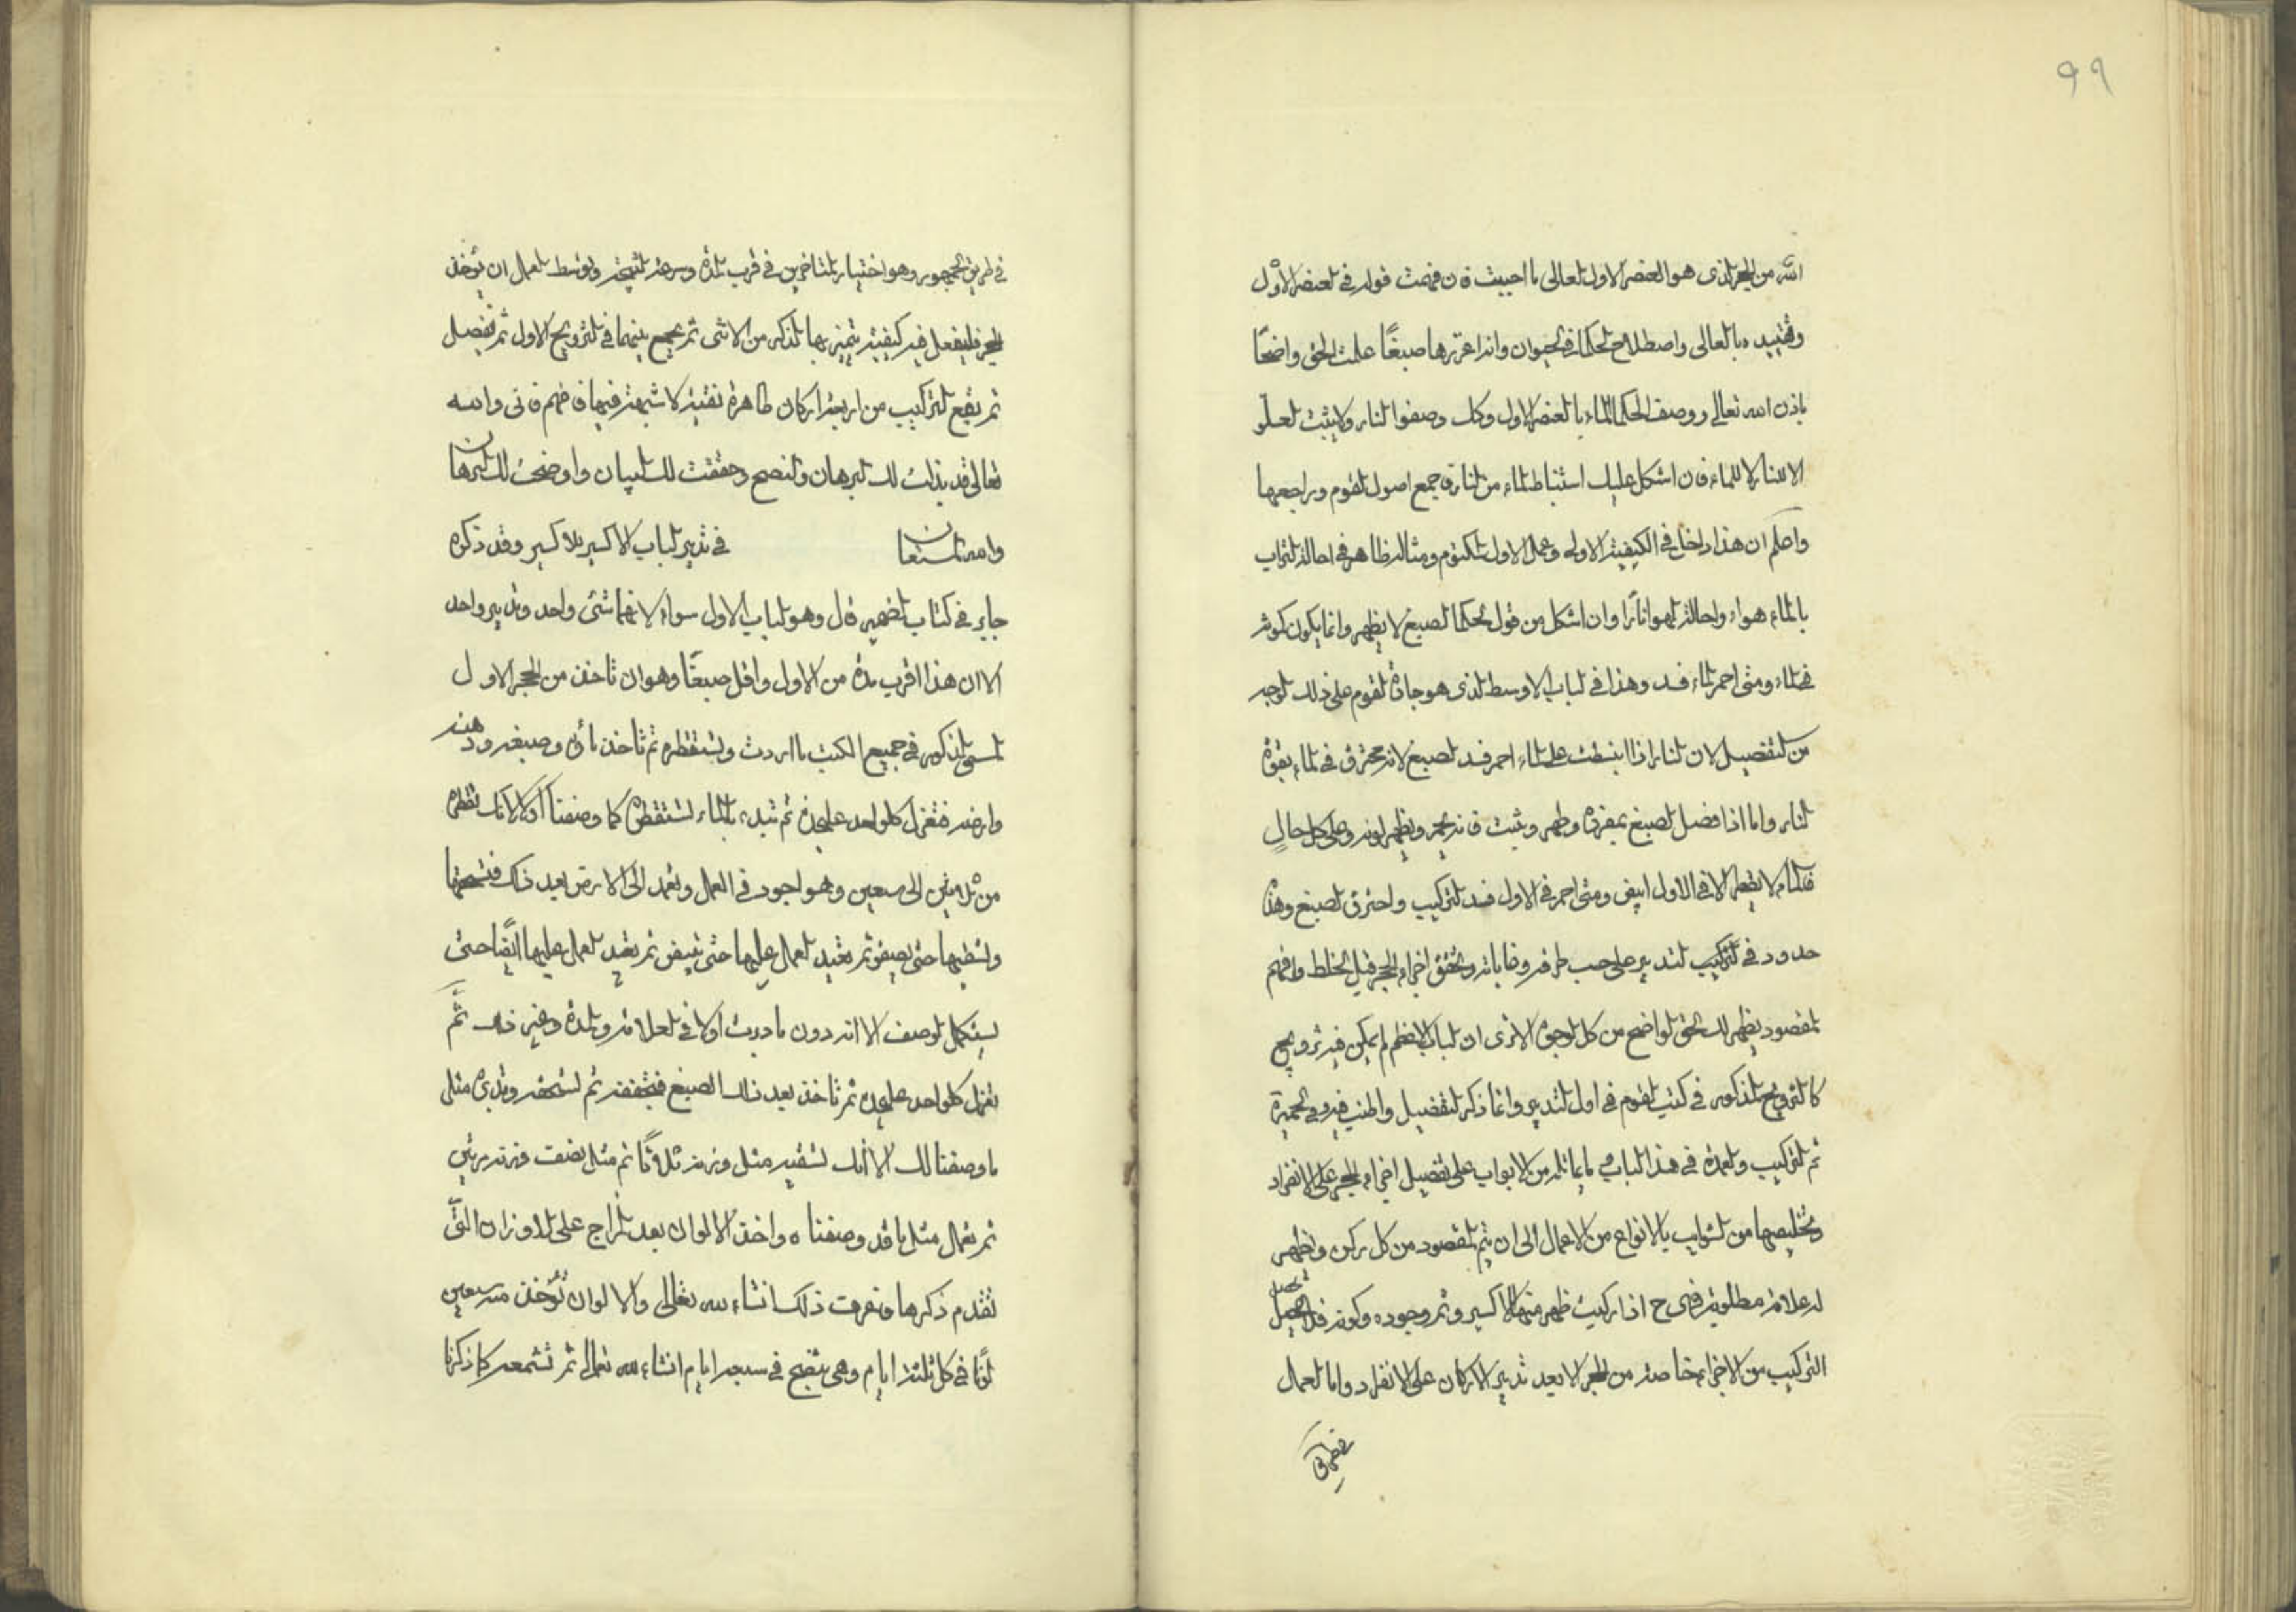 ٩٩
الله من الحجر الذى هو العنصر الاول العالى ما احببت فان فهمت قوله فى العنصر الاول
وتقييده بالعالى واصطلاح الحكما فى الحيوان وانه اغزرها صبغًا علمت الحق واضحًا
باذن الله تعالى ووصف الحكما الماء بالعنصر الاول وكك وصفوا النار ولا يثبت العلو
الا للنار لا للماء فان اشكل عليك استنباط الماء من النار فاجمع اصول القوم وراجعها
واعلم ان هذا داخل فى الكيفية الاولى وعمل الاول المكتوم ومثاله ظاهر فى احالة التراب
بالماء هواء واحالة الهوا نارًا وان اشكل من قول الحكما الصبغ لا يظهر وانما يكون كونه
فى الماء ومتى احمر الماء فسد وهذا فى الباب الاوسط الذى هو جادة القوم على ذلك الوجه
من التفصيل لان النار اذا انبسطت على الماء احمر فسد الصبغ لانه محترق فى الماء بقوة
النار واما اذا فصل الصبغ بمفرده وطهر وثبت فانه يحمر ويظهر لونه وعلى كل حالٍ
فالماء لا يقطر الا فى الاول ابيض ومتى احمر فى الاول فسد التركيب واحترق الصبغ وهذه
حدود فى التركيب لتدبير على حسب طرقه وغاياته وتحقق اجزاء الحجر قبل الخلط وافهم
المقصود يظهر لك الحق الواضح من كل الوجوه الا ترى ان الباب الاعظم لم يكن فيه تزويج
كالتزويج المذكور فى كتب القوم فى اول التدبير وانما ذكر التفصيل واطنب فيه وفى الخميرة
ثم التركيب والعمدة فى هذا الباب وما يماثله من الابواب على تفصيل اجزاء الحجر على الانفراد
وتخليصها من الشوايب بالانواع من الاعمال الى ان يتم المقصود من كل ركن ويظهر
له علامة مطلوبة فهى ح اذا ركبت ظهر منها الاكسير وثم وجوده وكونه فلا يحصل
التركيب من الاجزاء خاصة من الحجر الا بعد تدبير الاركان على الانفراد واما العمل
فى طريق الجمهور وهو اختيار المتأخرين فى قرب المدة وسرعة النتيجة وتوسط العمل ان يؤخذ
الحجر فليفعل فيه كيفية يتميز بها الذكر من الانثى ثم يجمع بينهما فى التزويج الاول ثم تفصيل
ثم يقع التركيب من اربعة اركان طاهرة نقية لا شبهة فيها فافهم فانى والله
تعالى قد بذلت لك البرهان والنصح وحققت لك البيان واوضحت لك البرهان
والله المستعان فى تدبير الباب الاكسير بلا كسير وقد ذكره
جابر فى كتاب الضمير قال وهو الباب الاول سواء لانهما شئ واحد وتدبير واحد
الا ان هذا اقرب مدة من الاول واقل صبغًا وهو ان تاخذ من الحجر الاول
المسمى المذكور فى جميع الكتب ما اردت وتستقطره ثم تاخذ ماؤه وصبغه ودهنه
وارضه فتعزل كل واحد على حدة ثم تبدء بالماء لتستقطره كما وصفنا اولا لانك تقطره
من ثلاثين الى سبعين وهو اجود فى العمل وتعمد الى الارض بعد ذلك فتسحقها
وتسقيها حتى تبيض ثم تعيد العمل عليها حتى تبيض ثم تعيد العمل عليها ايضًا حتى
يستكمل الوصف الا انه دون ما دبرت اولا فى العلامة والمدة وغير ذلك ثم
تعزل كل واحد على حدة ثم تاخذ بعد ذلك الصبغ فتجففه ثم تسحقه وتدبره مثل
ما وصفنا لك الا انك تسقيه مثل وزنه ثلاثًا ثم مثل نصف وزنه مرتين
ثم تعمل مثل ما قد وصفناه واخذ الالوان بعد المزاج على الاوزان التى
تقدم ذكرها وتعرف ذلك انشاء الله تعالى والالوان تؤخذ منه سبعين
لونًا فى كل ثلثة ايام وهى تنقبح فى سبعة ايام انشاء الله تعالى ثم تشمعه كما ذكرنا